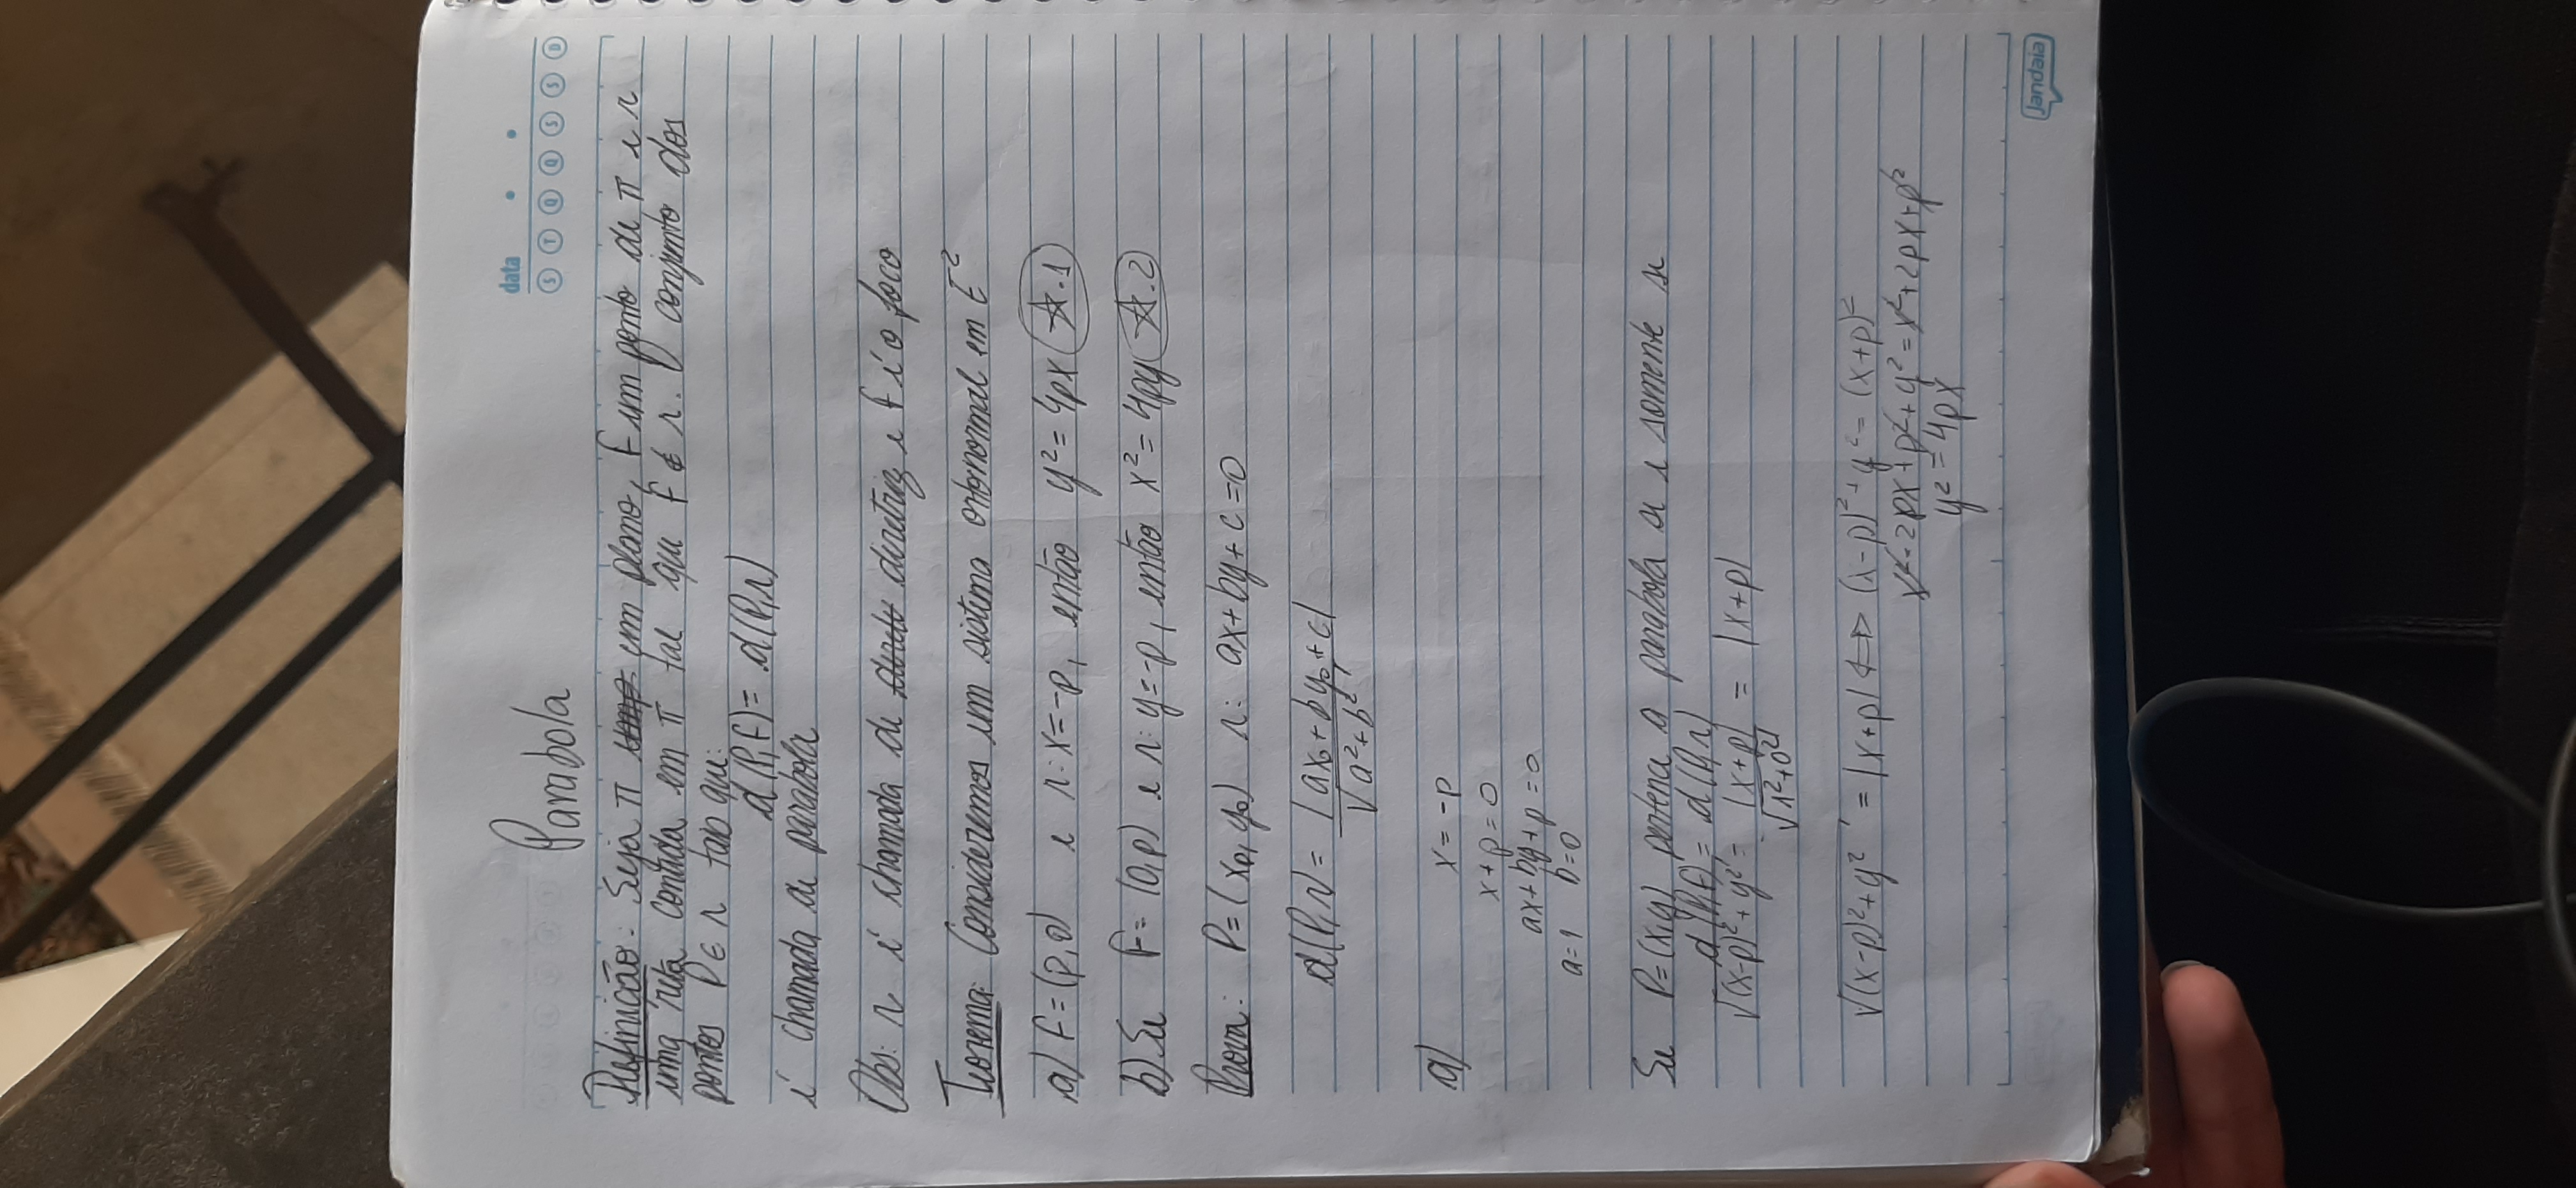 data
S T Q Q S S D
Parabola
Definição: Seja π um plano, F um ponto de π e r
uma reta contida em π tal que F ∉ r. O conjunto dos
pontos P ∈ r tais que:
d(P,F) = d(P,r)
é chamada de parabola
Obs: r é chamada de diretriz e F é o foco
Teorema: Consideremos um sistema ortonormal em E²
a) F = (p,0) e r: x = -p, então y² = 4px ☆.1
b) Se F = (0,p) e r: y = -p, então x² = 4py ☆.2
Prova: P = (x₀, y₀) r: ax + by + c = 0
d(P,r) = |ax₀ + by₀ + c| / √(a² + b²)
a) x = -p
x + p = 0
ax + by + p = 0
a = 1 b = 0
Se P = (x,y) pertence a parabola se e somente se
d(P,F) = d(P,r)
√((x-p)² + y²) = |x+p| / √(1² + 0²) = |x+p|
√((x-p)² + y²) = |x+p| ⟺ (x-p)² + y² = (x+p)²
x² - 2px + p² + y² = x² + 2px + p²
y² = 4px
Jandaia